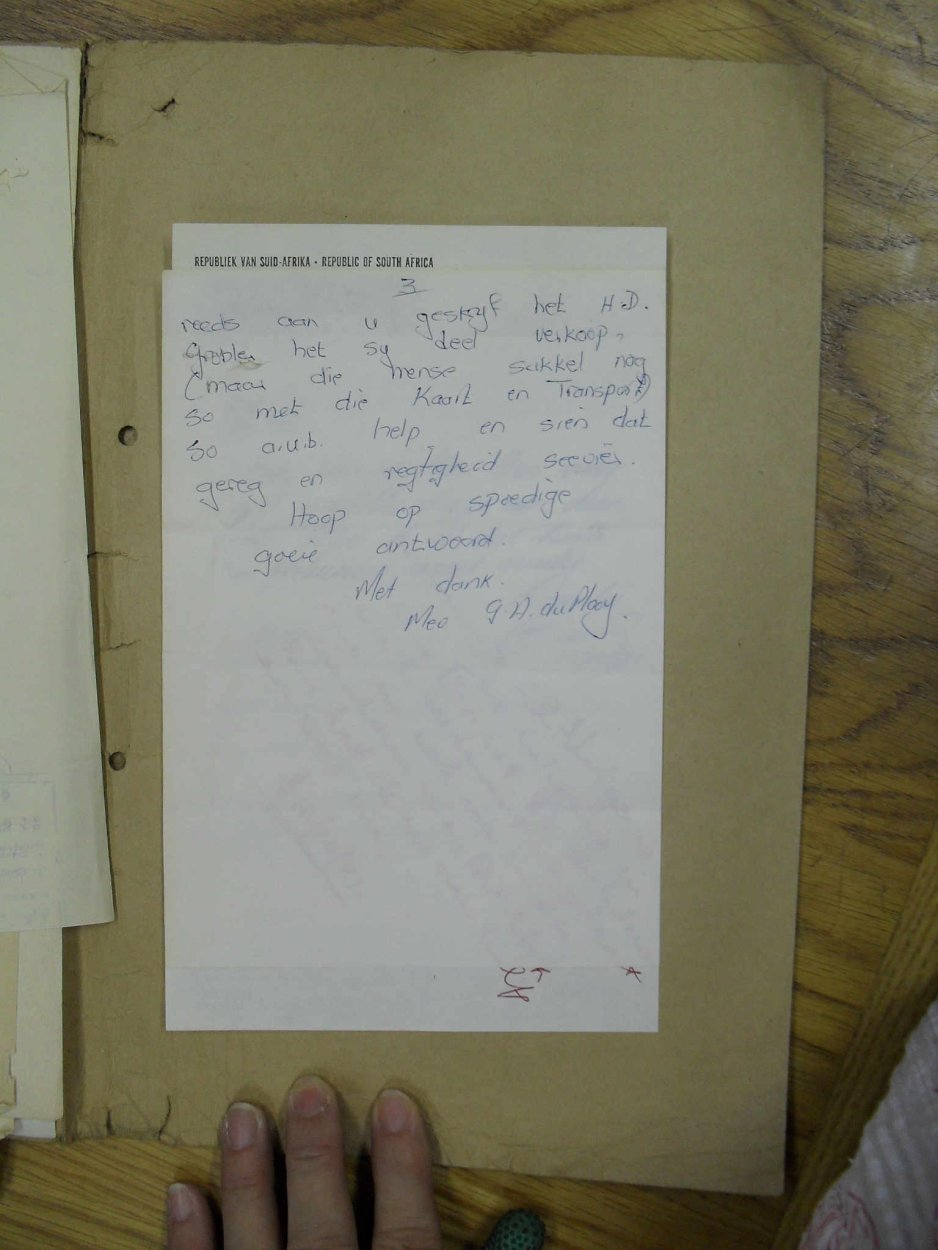 REPUBLIEK VAN SUID-AFRIKA • REPUBLIC OF SOUTH AFRICA
3
reeds aan u geskryf het H.D.
Grobler het sy deel verkoop,
(maar die mense sukkel nog
so met die Kaart en Transport)
So a.u.b. help en sien dat
gereg en regtigheid seevier.
Hoop op spoedige
goeie antwoord.
Met dank.
Mev G.A. du Plooy.